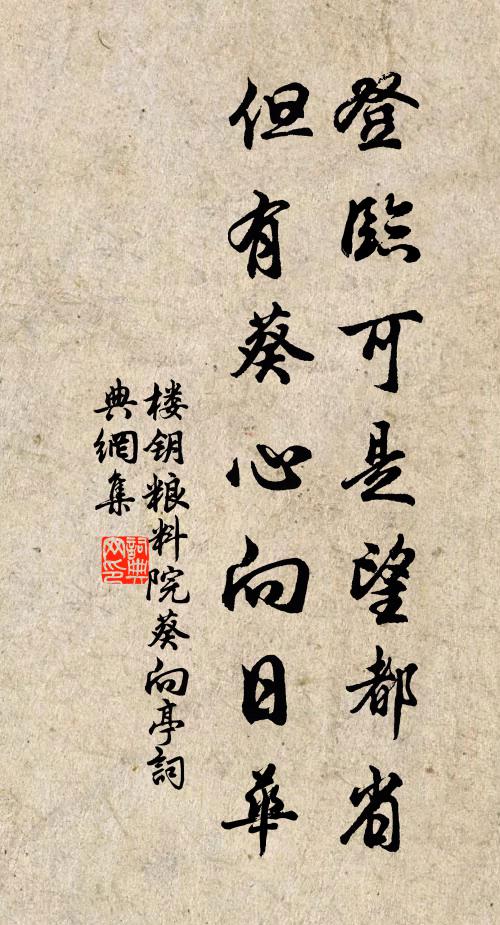 登臨可是望都省
但有葵心向日華
楼钥粮料院葵向亭詞
典網集
詞典网印